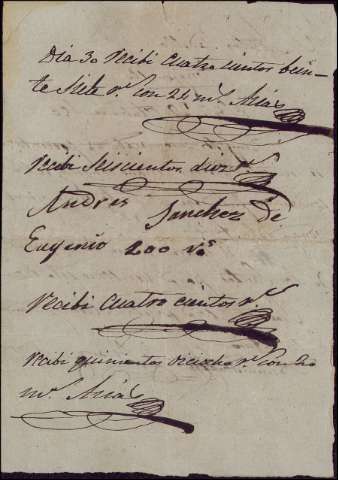 Dia 30 recibi cuatro cientos bein-
te siete rs. con 24 ms. Arias
recibi seiscientos diez rs.
Andres Sanchez de
Eugenio 200 rs
recibi cuatro cientos rs.
recibi quinientos rs. con
ms. Arias